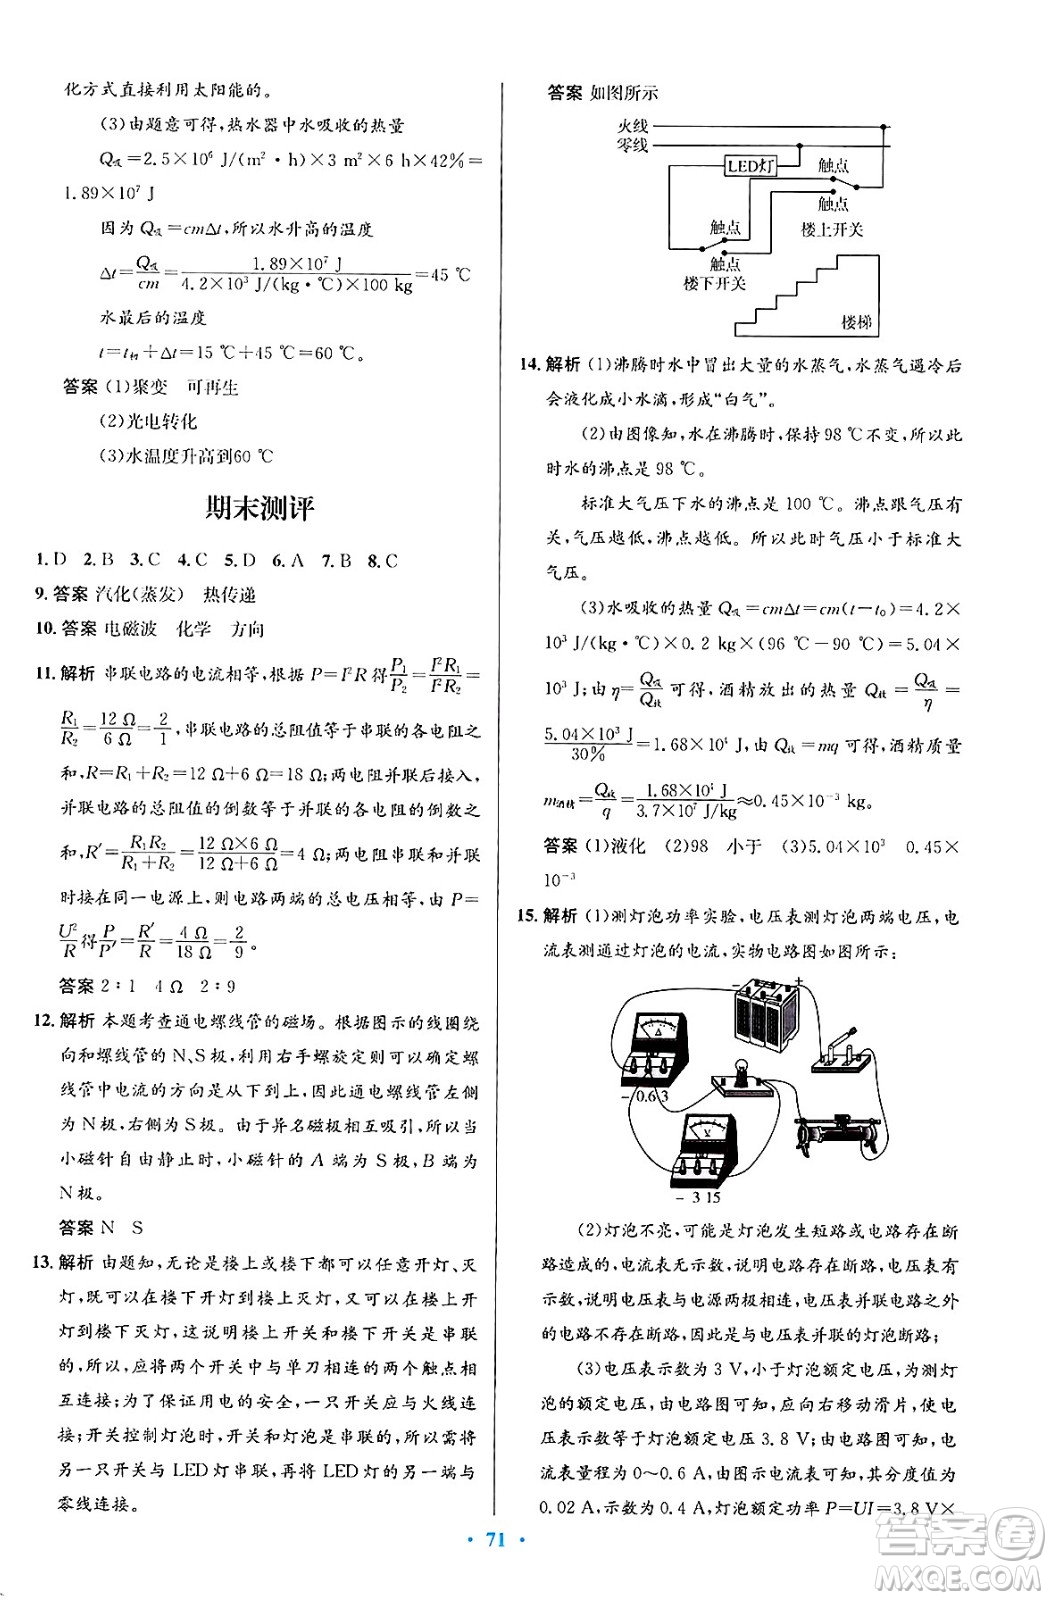 化方式直接利用太阳能的。
(3)由题意可得,热水器中水吸收的热量
Q吸=2.5×10⁶ J/(m²·h)×3 m²×6 h×42%=
1.89×10⁷ J
因为 Q吸=cmΔt,所以水升高的温度
Δt=Q吸/cm=1.89×10⁷ J/4.2×10³ J/(kg·℃)×100 kg=45 ℃
水最后的温度
t=t初+Δt=15 ℃+45 ℃=60 ℃。
答案 (1)聚变 可再生
(2)光电转化
(3)水温度升高到60 ℃
期末测评
1.D 2.B 3.C 4.C 5.D 6.A 7.B 8.C
9.答案 汽化(蒸发) 热传递
10.答案 电磁波 化学 方向
11.解析 串联电路的电流相等,根据 P=I²R 得P₁/P₂=I²R₁/I²R₂=
R₁/R₂=12 Ω/6 Ω=2/1,串联电路的总阻值等于各电阻阻值之
和,R=R₁+R₂=12 Ω+6 Ω=18 Ω;两电阻并联后接入,
并联电路的总阻值的倒数等于并联的各电阻的倒数之
和,R′=R₁R₂/R₁+R₂=12 Ω×6 Ω/12 Ω+6 Ω=4 Ω;两电阻串联和并联
时接在同一电源上,则电路两端的总电压相等,由 P=
U²/R得P/P′=R′/R=4 Ω/18 Ω=2/9。
答案 2∶1 4 Ω 2∶9
12.解析 本题考查通电螺线管的磁场。根据图示的线圈绕
向和螺线管的 N、S 极,利用右手螺旋定则可以确定螺
线管中电流的方向是从下到上,因此通电螺线管左侧
为 N 极,右侧为 S 极。由于异名磁极相互吸引,所以当
小磁针自由静止时,小磁针的 A 端为 S 极,B 端为
N 极。
答案 N S
13.解析 由题知,无论是楼上或楼下都可以任意开灯、灭
灯,既可以在楼下开灯到楼上灭灯,又可以在楼上开
灯到楼下灭灯,这说明楼上开关和楼下开关是串联
的,所以,应将两个开关中与单刀相连的两个触点相
互连接;为了保证用电的安全,一只开关应与火线连
接;开关控制灯泡时,开关和灯泡是串联的,所以需将
另一只开关与 LED 灯串联,再将 LED 灯的另一端与
零线连接。
答案 如图所示
火线
零线
LED灯
触点
触点
触点
楼上开关
触点
楼下开关
楼梯
14.解析 (1)沸腾时水中冒出大量的水蒸气,水蒸气遇冷后
会液化成小水滴,形成“白气”。
(2)由图像知,水在沸腾时,保持 98 ℃不变,所以此
时水的沸点是 98 ℃。
标准大气压下水的沸点是 100 ℃。沸点跟气压有
关,气压越低,沸点越低。所以此时气压小于标准大
气压。
(3)水吸收的热量 Q吸=cmΔt=cm(t−t₀)=4.2×
10³ J/(kg·℃)×0.2 kg×(96 ℃−90 ℃)=5.04×
10³ J;由 η=Q吸/Q放 可得,酒精放出的热量 Q放=Q吸/η=
5.04×10³ J/30%=1.68×10⁴ J,由 Q放=mq 可得,酒精质量
m酒精=Q放/q=1.68×10⁴ J/3.7×10⁷ J/kg≈0.45×10⁻³ kg。
答案 (1)液化 (2)98 小于 (3)5.04×10³ 0.45×
10⁻³
15.解析 (1)测灯泡功率实验,电压表测灯泡两端电压,电
流表测通过灯泡的电流,实物电路图如图所示:
− +
A
− 0.6 3
V
− 3 15
(2)灯泡不亮,可能是灯泡发生短路或电路存在断
路造成的,电流表无示数,说明电路存在断路,电压表有
示数,说明电压表与电源两极相连,与电压表并联电路之外
的电路不存在断路,因此是与电压表并联的灯泡断路;
(3)电压表示数为 3 V,小于灯泡额定电压,为测灯
泡的额定功率,由电路图可知,应向右移动滑片,使电
压表示数等于灯泡额定电压 3.8 V;由电路图可知,电流
表量程为 0～0.6 A,由图示电流表可知,其分度值为
0.02 A,示数为 0.4 A,灯泡额定功率 P=UI=3.8 V×
· 71 ·
答案圈
MXQE.COM